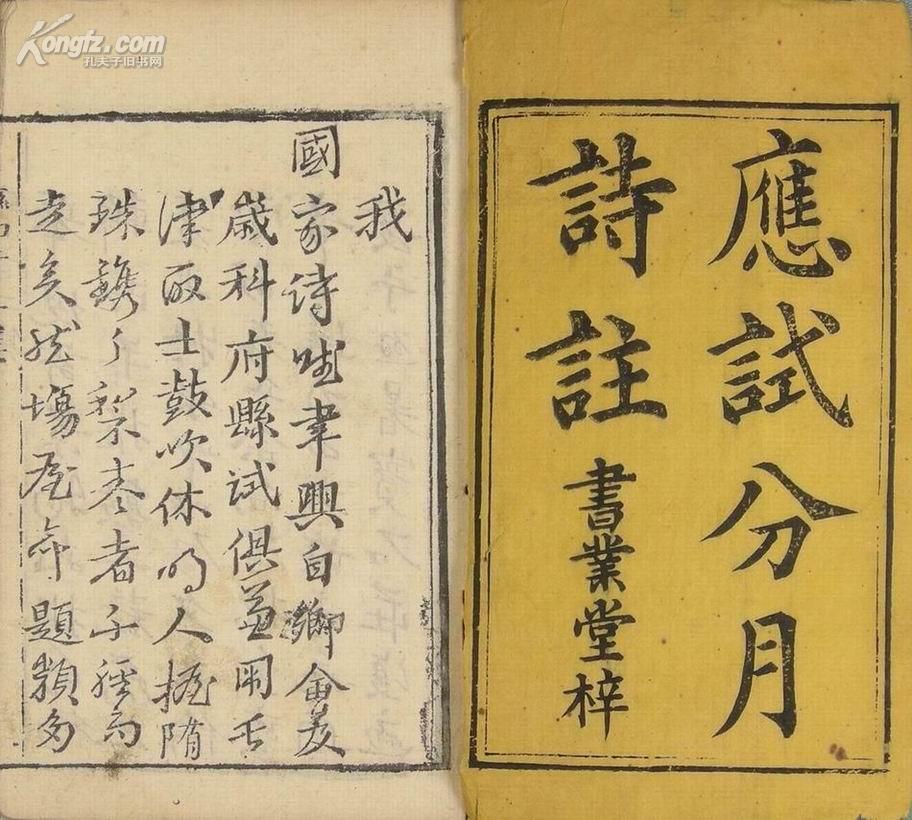 應試分月
詩註
書業堂梓
我
國家詩 興自鄉會及
歲科府縣試俱並用
津取士鼓吹休明人握隋
珠 棗者子
走矣然場屋命題類多
Kongfz.com
孔夫子旧书网